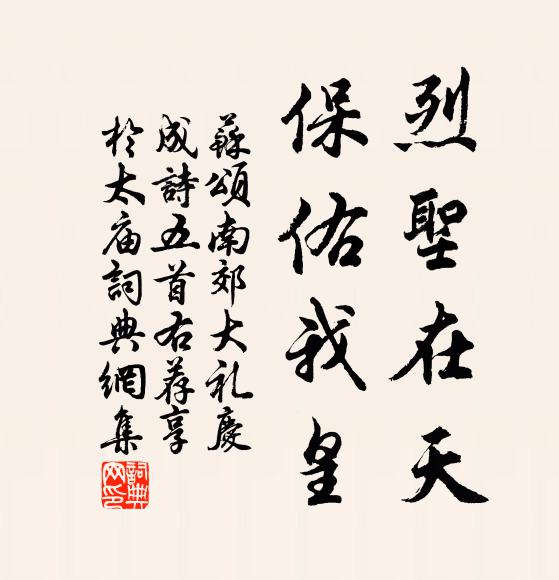 烈聖在天
保佑我皇
蘇頌南郊大礼慶
成詩五首右荐享
於太庙詞典網集
詞典网印